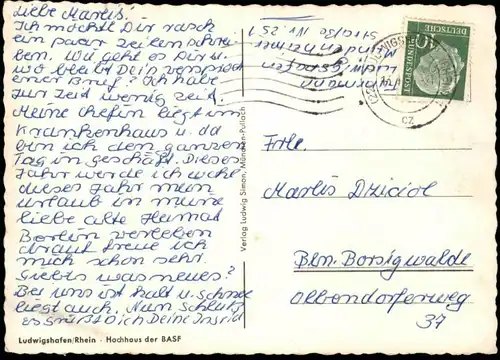 Liebe Marlis!
Ich möchte Dir rasch
ein paar Zeilen schrei-
ben. Wie geht es Dir u.
wo bleibt Dein versproch
ener Brief? Ich habe
zur Zeit wenig Zeit.
Meine Chefin liegt im
Krankenhaus u. da
bin ich den ganzen
Tag im Geschäft. Dieses
Jahr werde ich wohl
dieses Jahr mein
Urlaub in meine
liebe alte Heimat
Berlin verleben
darauf freue ich
mich schon sehr.
Giebts was neues?
Bei uns ist kalt u. Schnee
liegt auch. Nun Schluß
es grüßt Dich Deine Ingrid
Ludwigshafen/Rhein - Hochhaus der BASF
Verlag Ludwig Simon, München-Pullach
DEUTSCHE
BUNDESPOST
10
cz
Frle.
Marlis
Bln. Borsigwalde
37